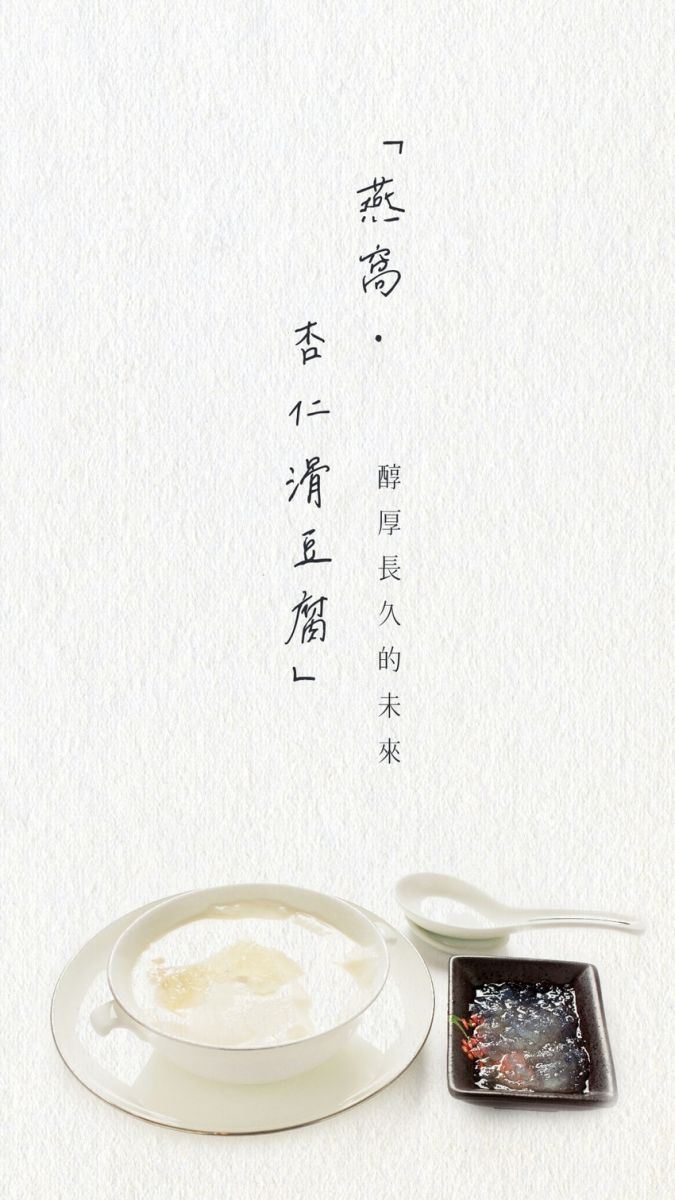 「燕窩·
杏仁滑豆腐」
醇厚長久的未來